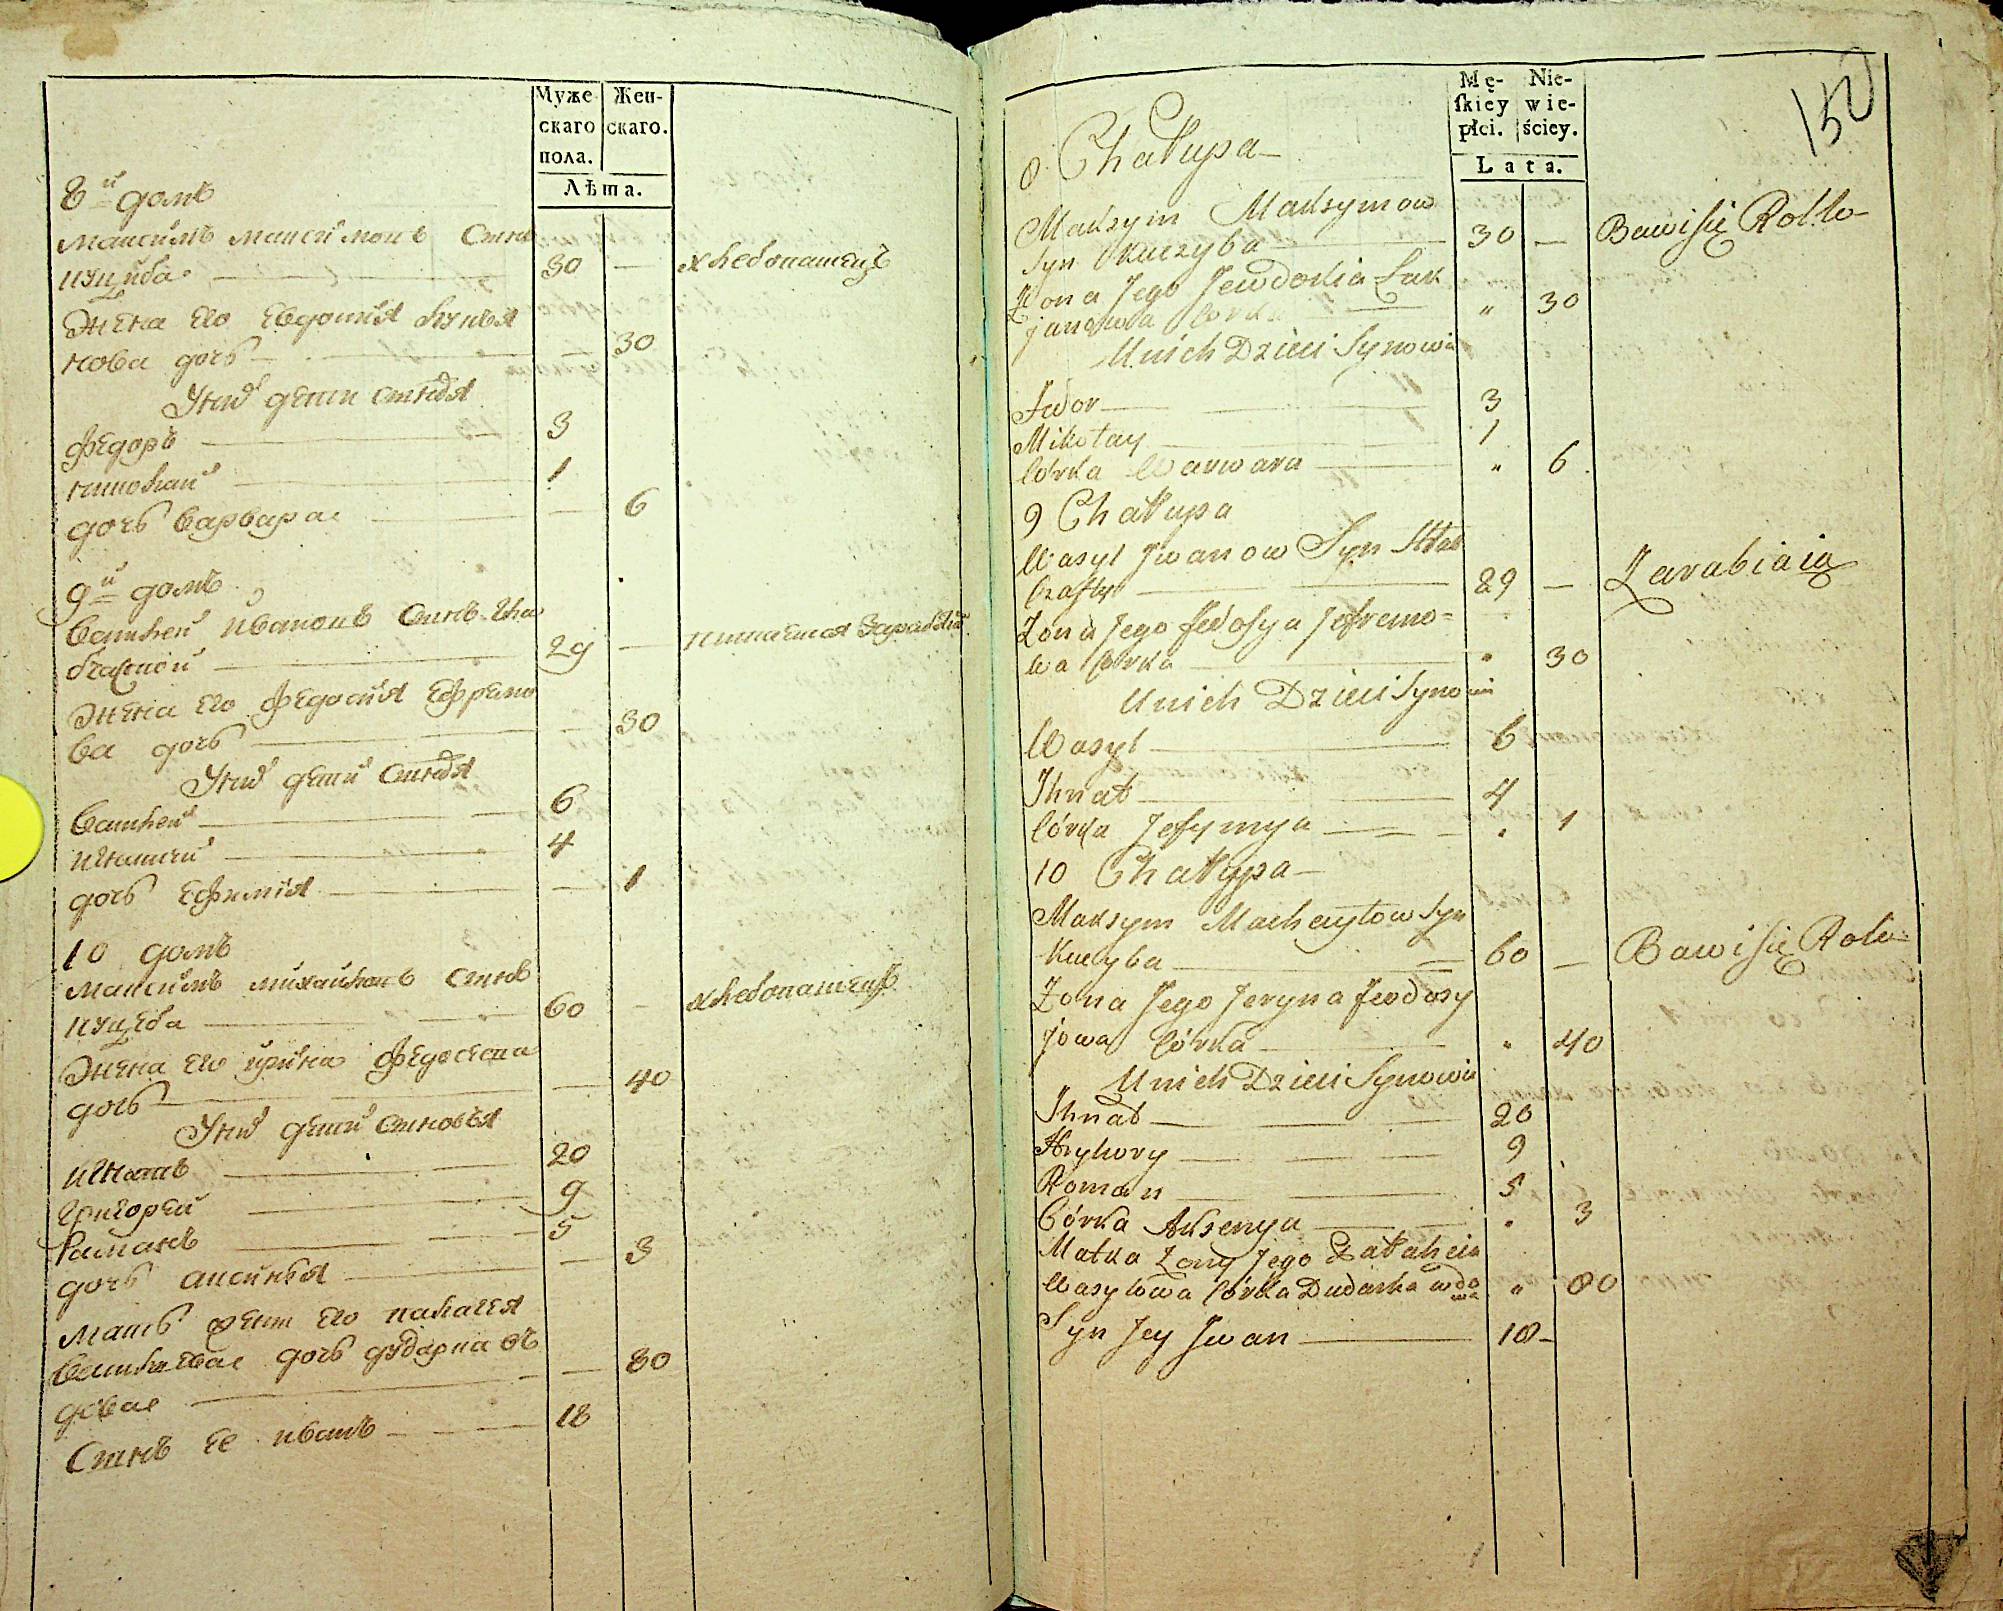 Муже-
скаго
пола.
Жен-
скаго.
Лѣта.
8й домъ
Максимъ Максимовъ Сынъ
Куциба 30 — хлебопашецъ
Жена его Евдокия Лукья
нова дочь — 30
У них дети Сыновья
Федоръ 3
Николай 1
дочь Варвара — 6
9й домъ
Василей Ивановъ Сынъ
29 — питается
Жена его Федосия Ефремо
ва дочь — 30
У них дети Сыновья
Василей 6
Игнатий 4
дочь Ефимия — 1
10 домъ
Максимъ Михайловъ Сынъ
Куцеба 60 — хлебопашецъ
Жена его Ирина Федосеева
дочь — 40
У них дети Сыновья
Игнатъ 20
Григорей 9
Раманъ 5
дочь Аксинья — 3
Мать жены его Палагея
Васильева дочь Дударка въ
дова — 80
Сынъ ее Иванъ 18
Mę-
skiey
płci.
Nie-
wie-
ściey.
Lata.
152
8 Chałupa
Maksym Maksymow
Syn Kuczyba 30 — Bawi się Rollo
Zona Jego Jewdokia Łuk
janowa Córka " 30
U nich Dzieci Synowie
Fedor 3
Mikołay 1
Córka Warwara " 6
9 Chałupa
Wasyl Jwanow Syn
29 — Zarabiaią
Zona Jego Fedosya Jefremo-
wa Córka " 30
U nich Dzieci Synowie
Wasyl 6
Jhnat 4
Córka Jefymya " 1
10 Chałupa
Maksym Machayłow Syn
Kucyba 60 — Bawi się Rolo
Zona Jego Jeryna Fedosy
jowa Córka " 40
U nich Dzieci Synowie
Jhnat 20
Hryhory 9
Roman 5
Córka Aksenya " 3
Matka Zony Jego Pałaheia
Wasylowa Córka Dudarka wdo
wa " 80
Syn Jey Jwan 18